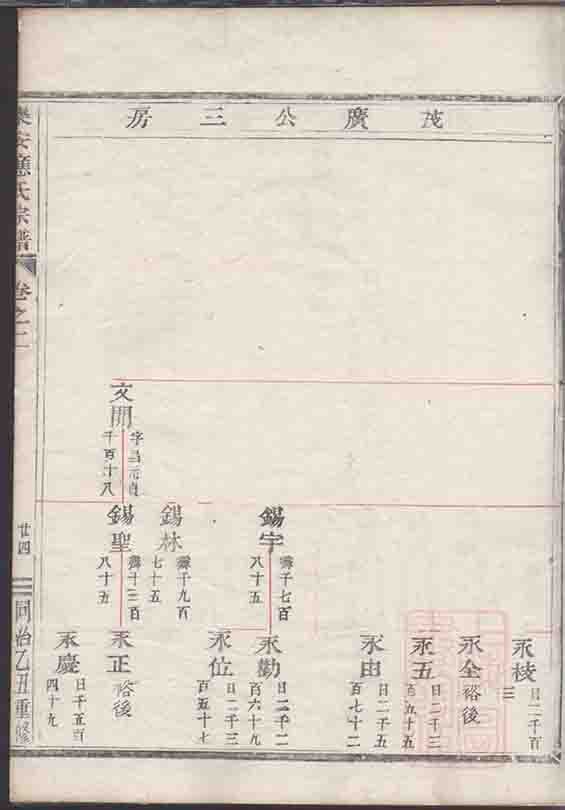 茂廣公三房
永棱
日二千百
三
永全
裕後
永五
日二千二
百五十五
永由
日二千五
百七十二
錫宇
舜千七百
八十五
永勤
日二千二
百六十九
永位
日二千三
百五十七
錫林
舜千九百
七十五
文開
千百十八
錫聖
舜千三百
八十五
永正
裕後
永慶
日千五百
四十九
樂安應氏宗譜
卷之二
廿四
同治乙丑重修